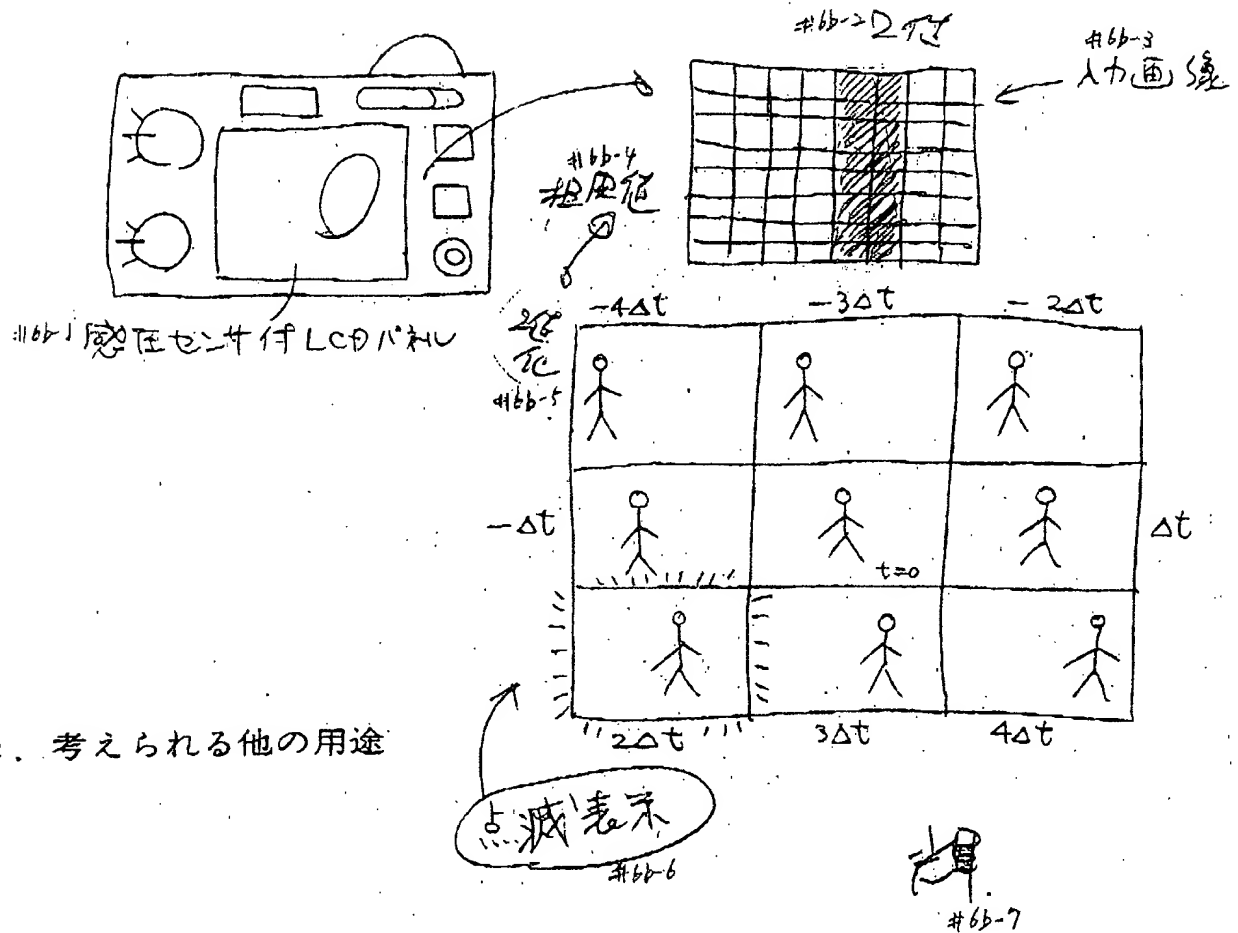 #6b-2 2値
#6b-3
入力画像
#6b-4
#6b-1 感圧センサ付LCDパネル
-4Δt -3Δt -2Δt
#6b-5
-Δt t=0 Δt
2Δt 3Δt 4Δt
. 考えられる他の用途
点滅表示
#6b-6
#6b-7